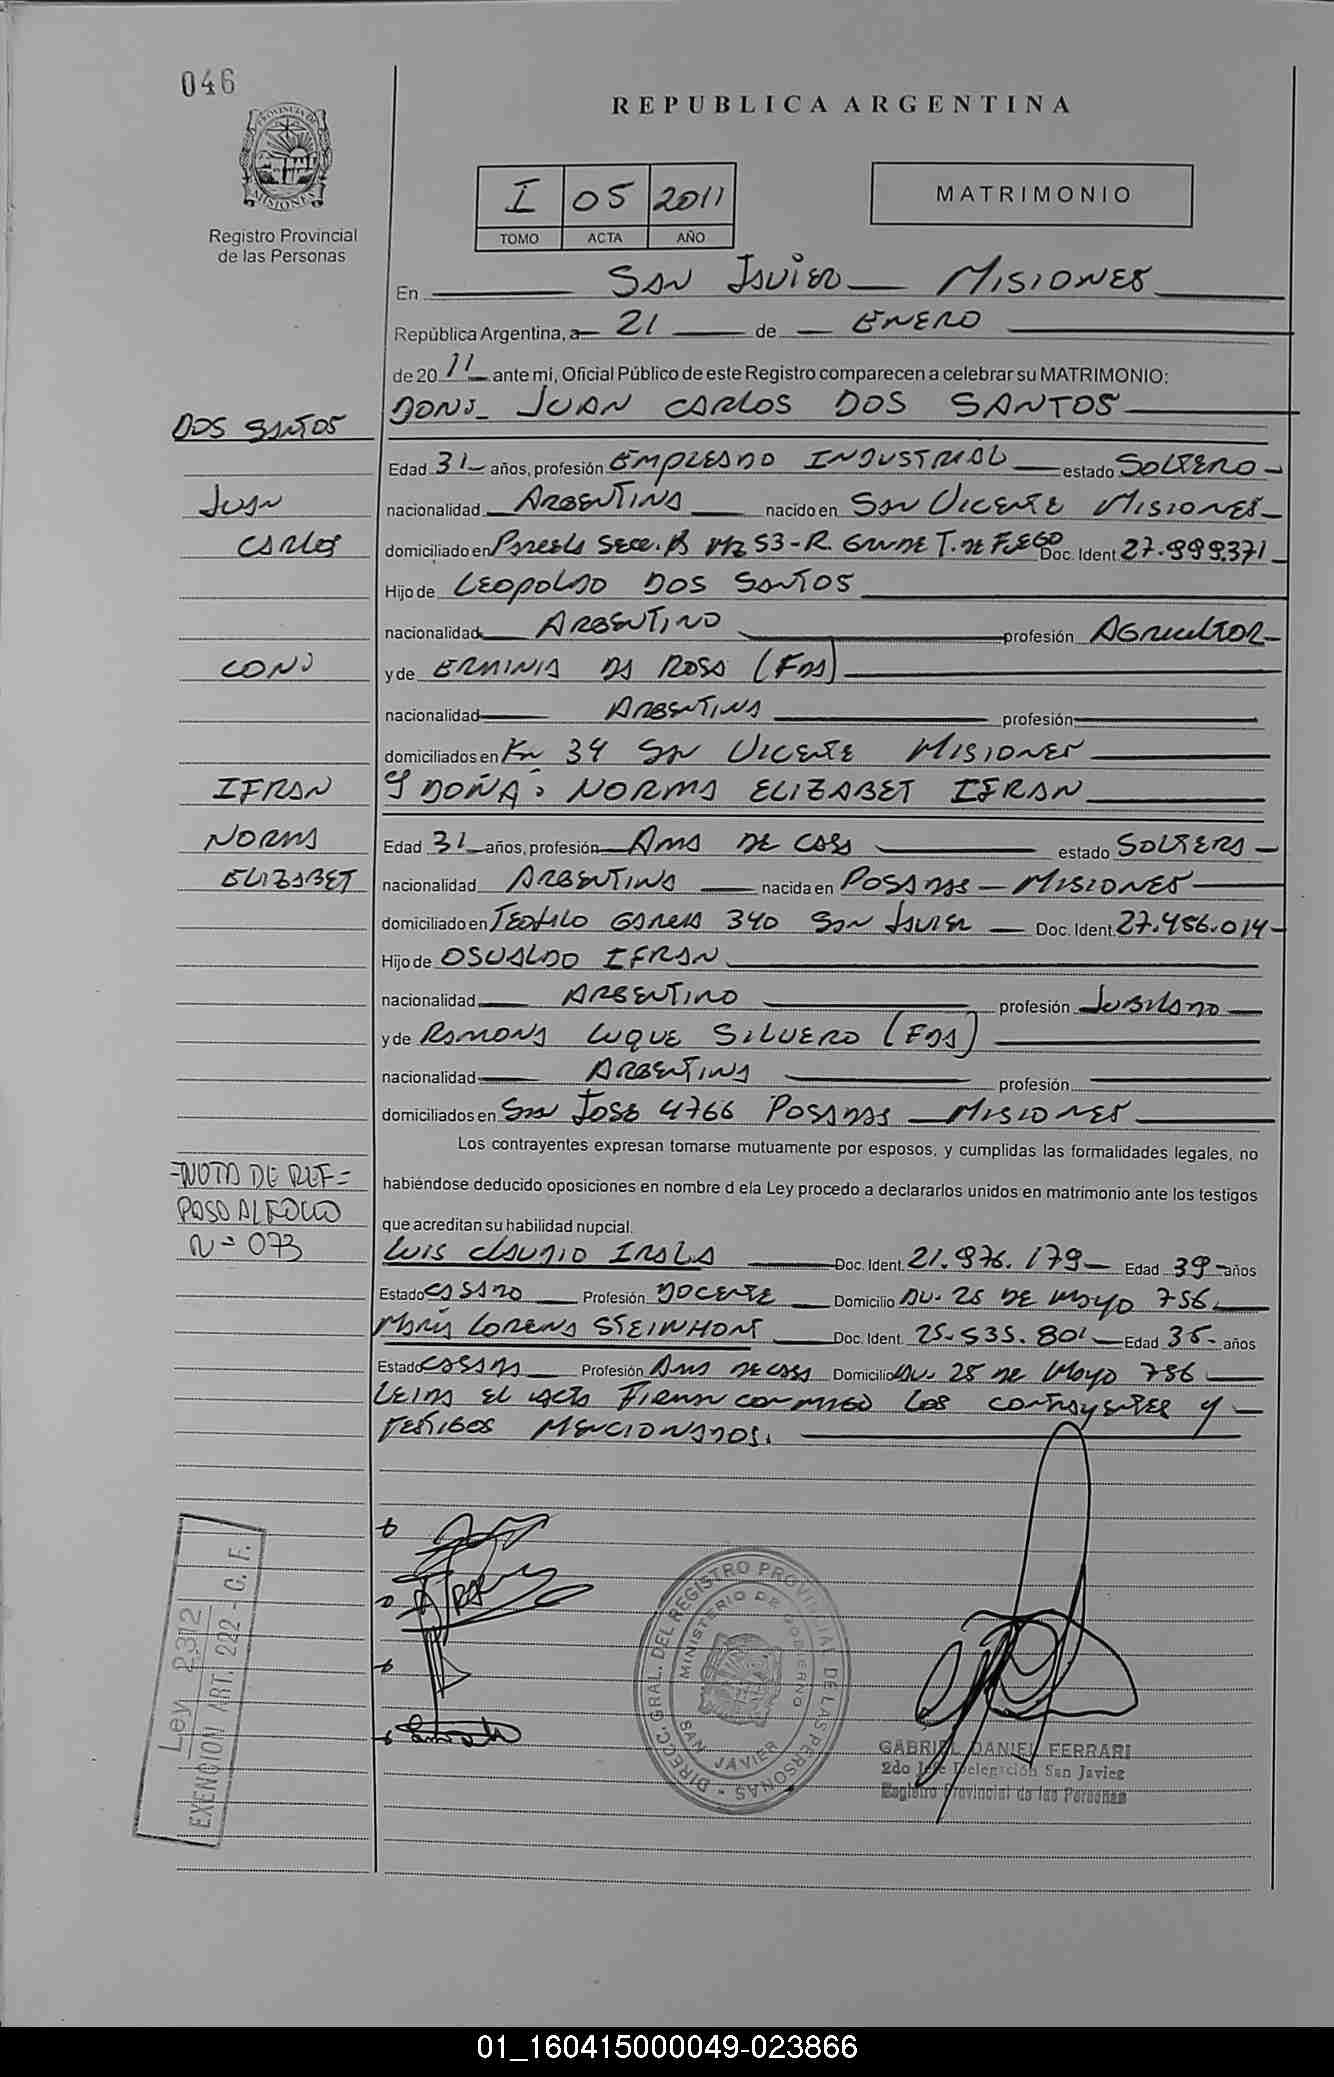 046
PROVINCIA DE MISIONES
Registro Provincial
de las Personas
REPUBLICA ARGENTINA
I 05 2011
TOMO ACTA AÑO
MATRIMONIO
En SAN JAVIER MISIONES
República Argentina, a 21 de ENERO
de 20 11 ante mi, Oficial Público de este Registro comparecen a celebrar su MATRIMONIO:
DON: JUAN CARLOS DOS SANTOS
Edad 31 años, profesión EMPLEADO INDUSTRIAL estado SOLTERO
nacionalidad ARGENTINA nacido en SAN VICENTE MISIONES
domiciliado en Parcela Secc. B Mz 53 - R. GRANDE T. DE FUEGO Doc. Ident. 27.999.371
Hijo de LEOPOLDO DOS SANTOS
nacionalidad ARGENTINO profesión AGRICULTOR
y de ERMINIA DA ROSA (FDA)
nacionalidad ARGENTINA profesión
domiciliados en Km 34 SAN VICENTE MISIONES
Y DOÑA: NORMA ELIZABET IFRAN
Edad 31 años, profesión AMA DE CASA estado SOLTERA
nacionalidad ARGENTINA nacida en POSADAS - MISIONES
domiciliado en TEOFILO GARCIA 340 SAN JAVIER Doc. Ident. 27.456.014
Hijo de OSVALDO IFRAN
nacionalidad ARGENTINO profesión JUBILADO
y de RAMONA LUQUE SILVERO (FDA)
nacionalidad ARGENTINA profesión
domiciliados en SAN JOSE 4766 POSADAS MISIONES
Los contrayentes expresan tomarse mutuamente por esposos, y cumplidas las formalidades legales, no
habiéndose deducido oposiciones en nombre d ela Ley procedo a declararlos unidos en matrimonio ante los testigos
que acreditan su habilidad nupcial.
LUIS CLAUDIO IRALA Doc. Ident. 21.976.179 Edad 39 años
Estado CASADO Profesión DOCENTE Domicilio AV. 25 DE MAYO 756
MARIA LORENA STEINHORT Doc. Ident. 25.535.801 Edad 35 años
Estado CASADA Profesión AMA DE CASA Domicilio AV. 25 DE MAYO 756
LEIDA EL ACTA FIRMAN CONMIGO LOS CONTRAYENTES Y
TESTIGOS MENCIONADOS.
DOS SANTOS
JUAN
CARLOS
CON:
IFRAN
NORMA
ELIZABET
=NOTA DE REF=
PASO AL FOLIO
Nº 073
Ley 2312
EXENCION ART. 222 - C. F.
DIRECC. GRAL. DEL REGISTRO PROVINCIAL DE LAS PERSONAS
MINISTERIO DE GOBIERNO
SAN JAVIER
GABRIEL DANIEL FERRARI
2do Jefe Delegación San Javier
Registro Provincial de las Personas
01_160415000049-023866